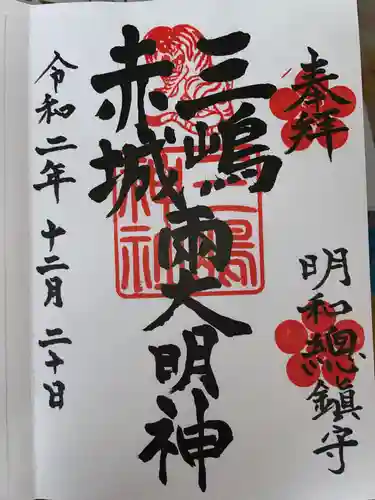 奉拝
明和總鎮守
三嶋
赤城
兩大明神
三嶋神社
令和二年 十二月 二十日